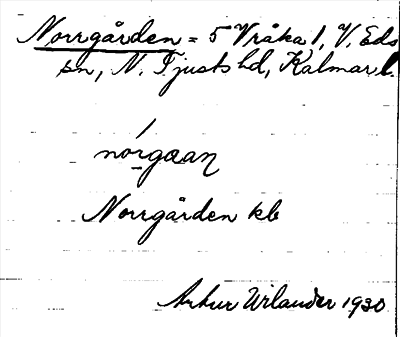 Norrgården = 5 Vråka 1, V. Eds
sn, N. Tjusts hd, Kalmar l.
nórgaan
Norrgården kb
Arthur Wilander 1930